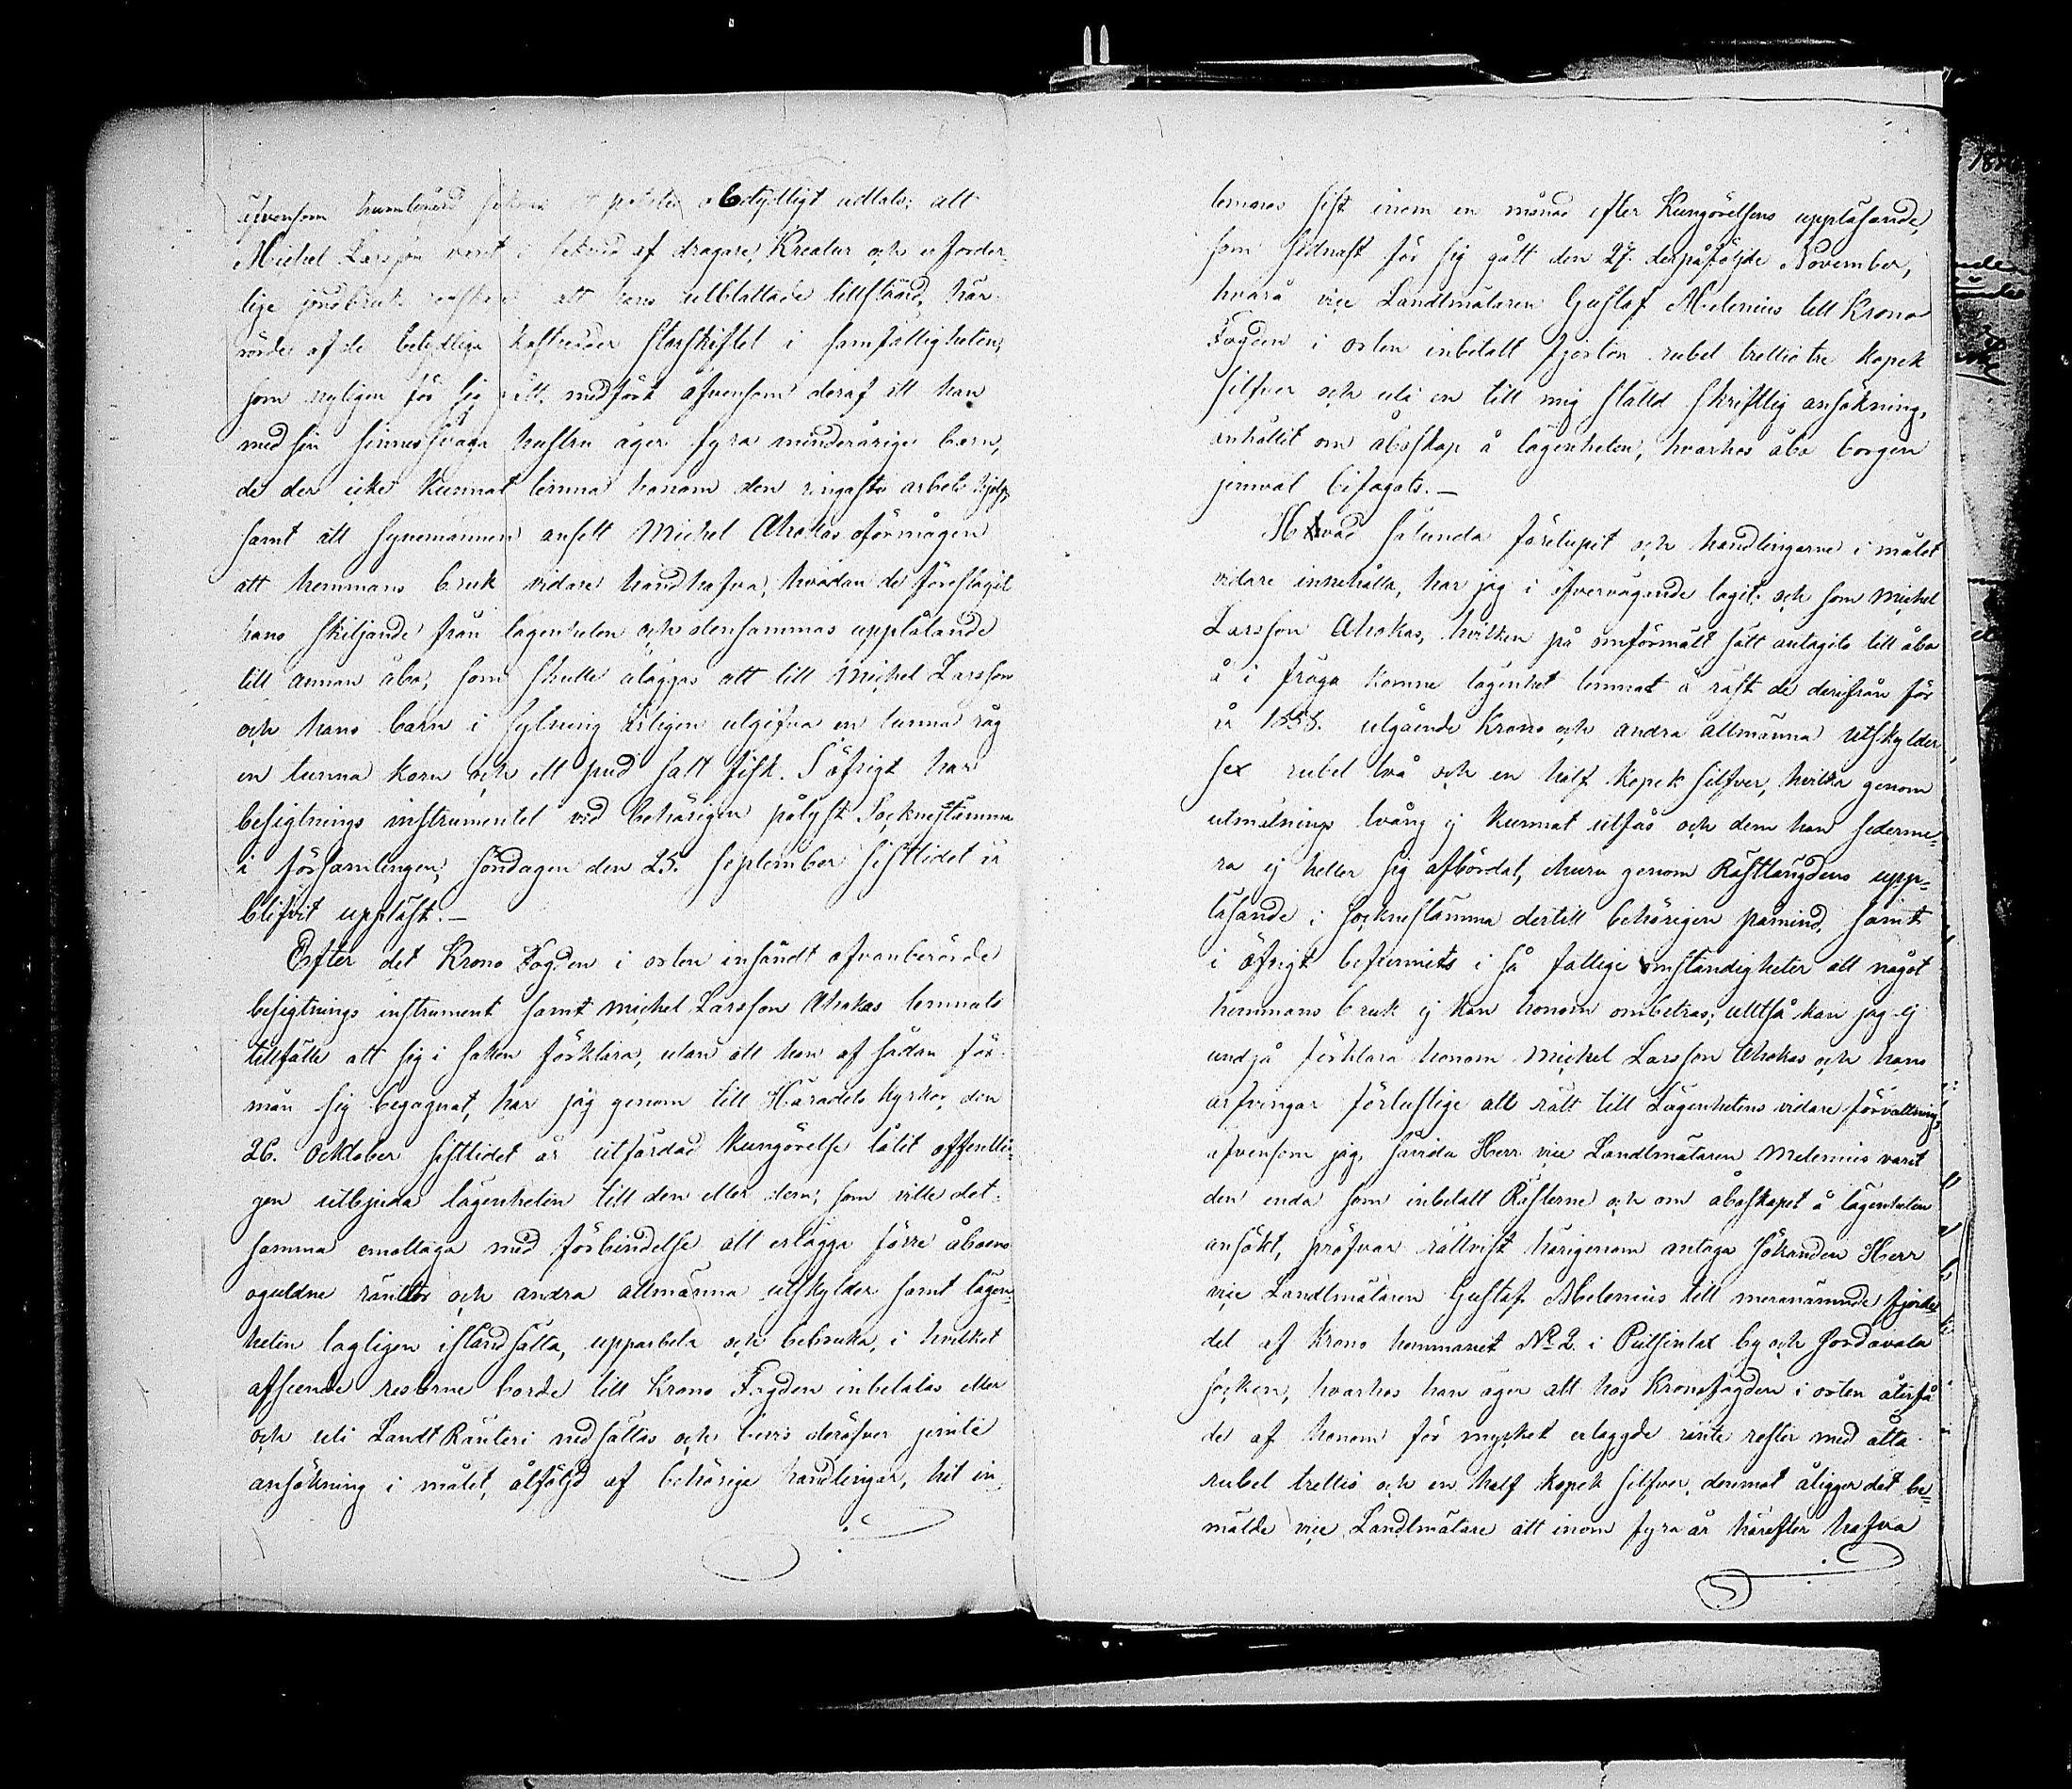 äfvensom humlegård obetydligt utlals; att
Michel Larsson varit i saknad af dragare, Kreatur och erforder-
lige jordbruk att hans utblottade tillstånd, här-
rörde af de betydliga kostnader storskiftet i samfälligheten,
som nyligen för sig gått, medfört äfvensom deraf att han
med sin sinnessvaga hustru äger fyra minderåriga barn,
de der icke kunnat lemna honom den ringaste arbets hjelp,
samt att synemännen ansett Michel Ahokas oförmögen
att hemmans bruk vidare handhafva, hvadan de föreslagit
hans skiljande från lägenheten och densammas upplåtande
till annan åbo, som skulle åläggas att till Michel Larsson
och hans barn i sytning årligen utgifva en tunna råg
en tunna korn och ett pud salt fisk. I öfrigt har
besigtnings instrumentet vid behörigen pålyst Sockne stämma
i församlingen, söndagen den 25. September sistlidet år
blifvit uppläst.—
Efter det Krono Fogden i orten insändt ofvanberörde
besigtnings instrument samt Michel Larsson Ahokas lemnats
tillfälle att sig i saken förklara, utan att han af sådan för-
mån sig begagnat, har jag genom till Häradets kyrkor den
26. Ocktober sistlidet år utfärdad kungörelse låtit offentli-
gen utbjuda lägenheten till den eller dem, som ville det-
samma emottaga med förbindelse att erlägga förre åboens
oguldne räntor och andra allmänna utskylder samt lägen-
heten lagligen iståndsätta, upparbeta och bebruka, i hvilket
afseende resterne borde till Krono Fogden inbetalas eller
och uti Landt Ränteri nedsättas och bevis deröfver jemte
ansökning i målet, åtföljd af behöriga handlingar, hit in-
lemnas sist inom en månad efter Kungörelsens uppläsande,
som sednast för sig gått den 27. derpåföljde November,
hvarå vice Landtmätaren Gustaf Melenius till Krono
Fogden i orten inbetalt fjorton rubel trettiotre kopek
silfver och uti en till mig ställd skriftlig ansökning,
anhållit om åboskap å lägenheten, hvarhos åbo borgen
jemväl bifogats.—
Hvad sålunda förelupit och handlingarne i målet
vidare innehålla, har jag i öfvervägande tagit; och som Michel
Larsson Ahokas, hvilken på omförmält sätt antagits till åbo
å i fråga komne lägenhet lemnat å rest de derifrån för
år 1858. utgående Krono och andra allmänna utskylder
sex rubel två och en half kopek silfver, hvilka genom
utmätnings tvång ej kunnat utfås och dem han sederme-
ra ej heller sig afbördat, ehuru genom Restlängdens upp-
läsande i sockne stämma dertill behörigen påmind, samt
i öfrigt befunnits i så fattige omständigheter att något
hemmans bruk ej kan honom ombetros; alltså kan jag ej
undgå förklara honom Michel Larsson Ahokas och hans
arfvingar förlustige all rätt till Lägenhetens vidare förvaltning,
äfvensom jag, såvida Herr vice Landtmätaren Melenius varit
den enda som inbetalt Resterne och om åboskapet å lägenheten
ansökt, pröfvar rättvist härigenom antaga sökanden Herr
vice Landtmätaren Gustaf Melenius till meranämnde fjerde
del af Krono hemmanet No 2. i Puitsinlax by och Sordavala
socken, hvarhos han äger att hos Kronofogden i orten återfå
de af honom för mycket erlaggde ränte rester med åtta
rubel trettio och en half kopek silfver, deremot åligger det be-
mälde vice Landtmätare att inom fyra år härefter hafva